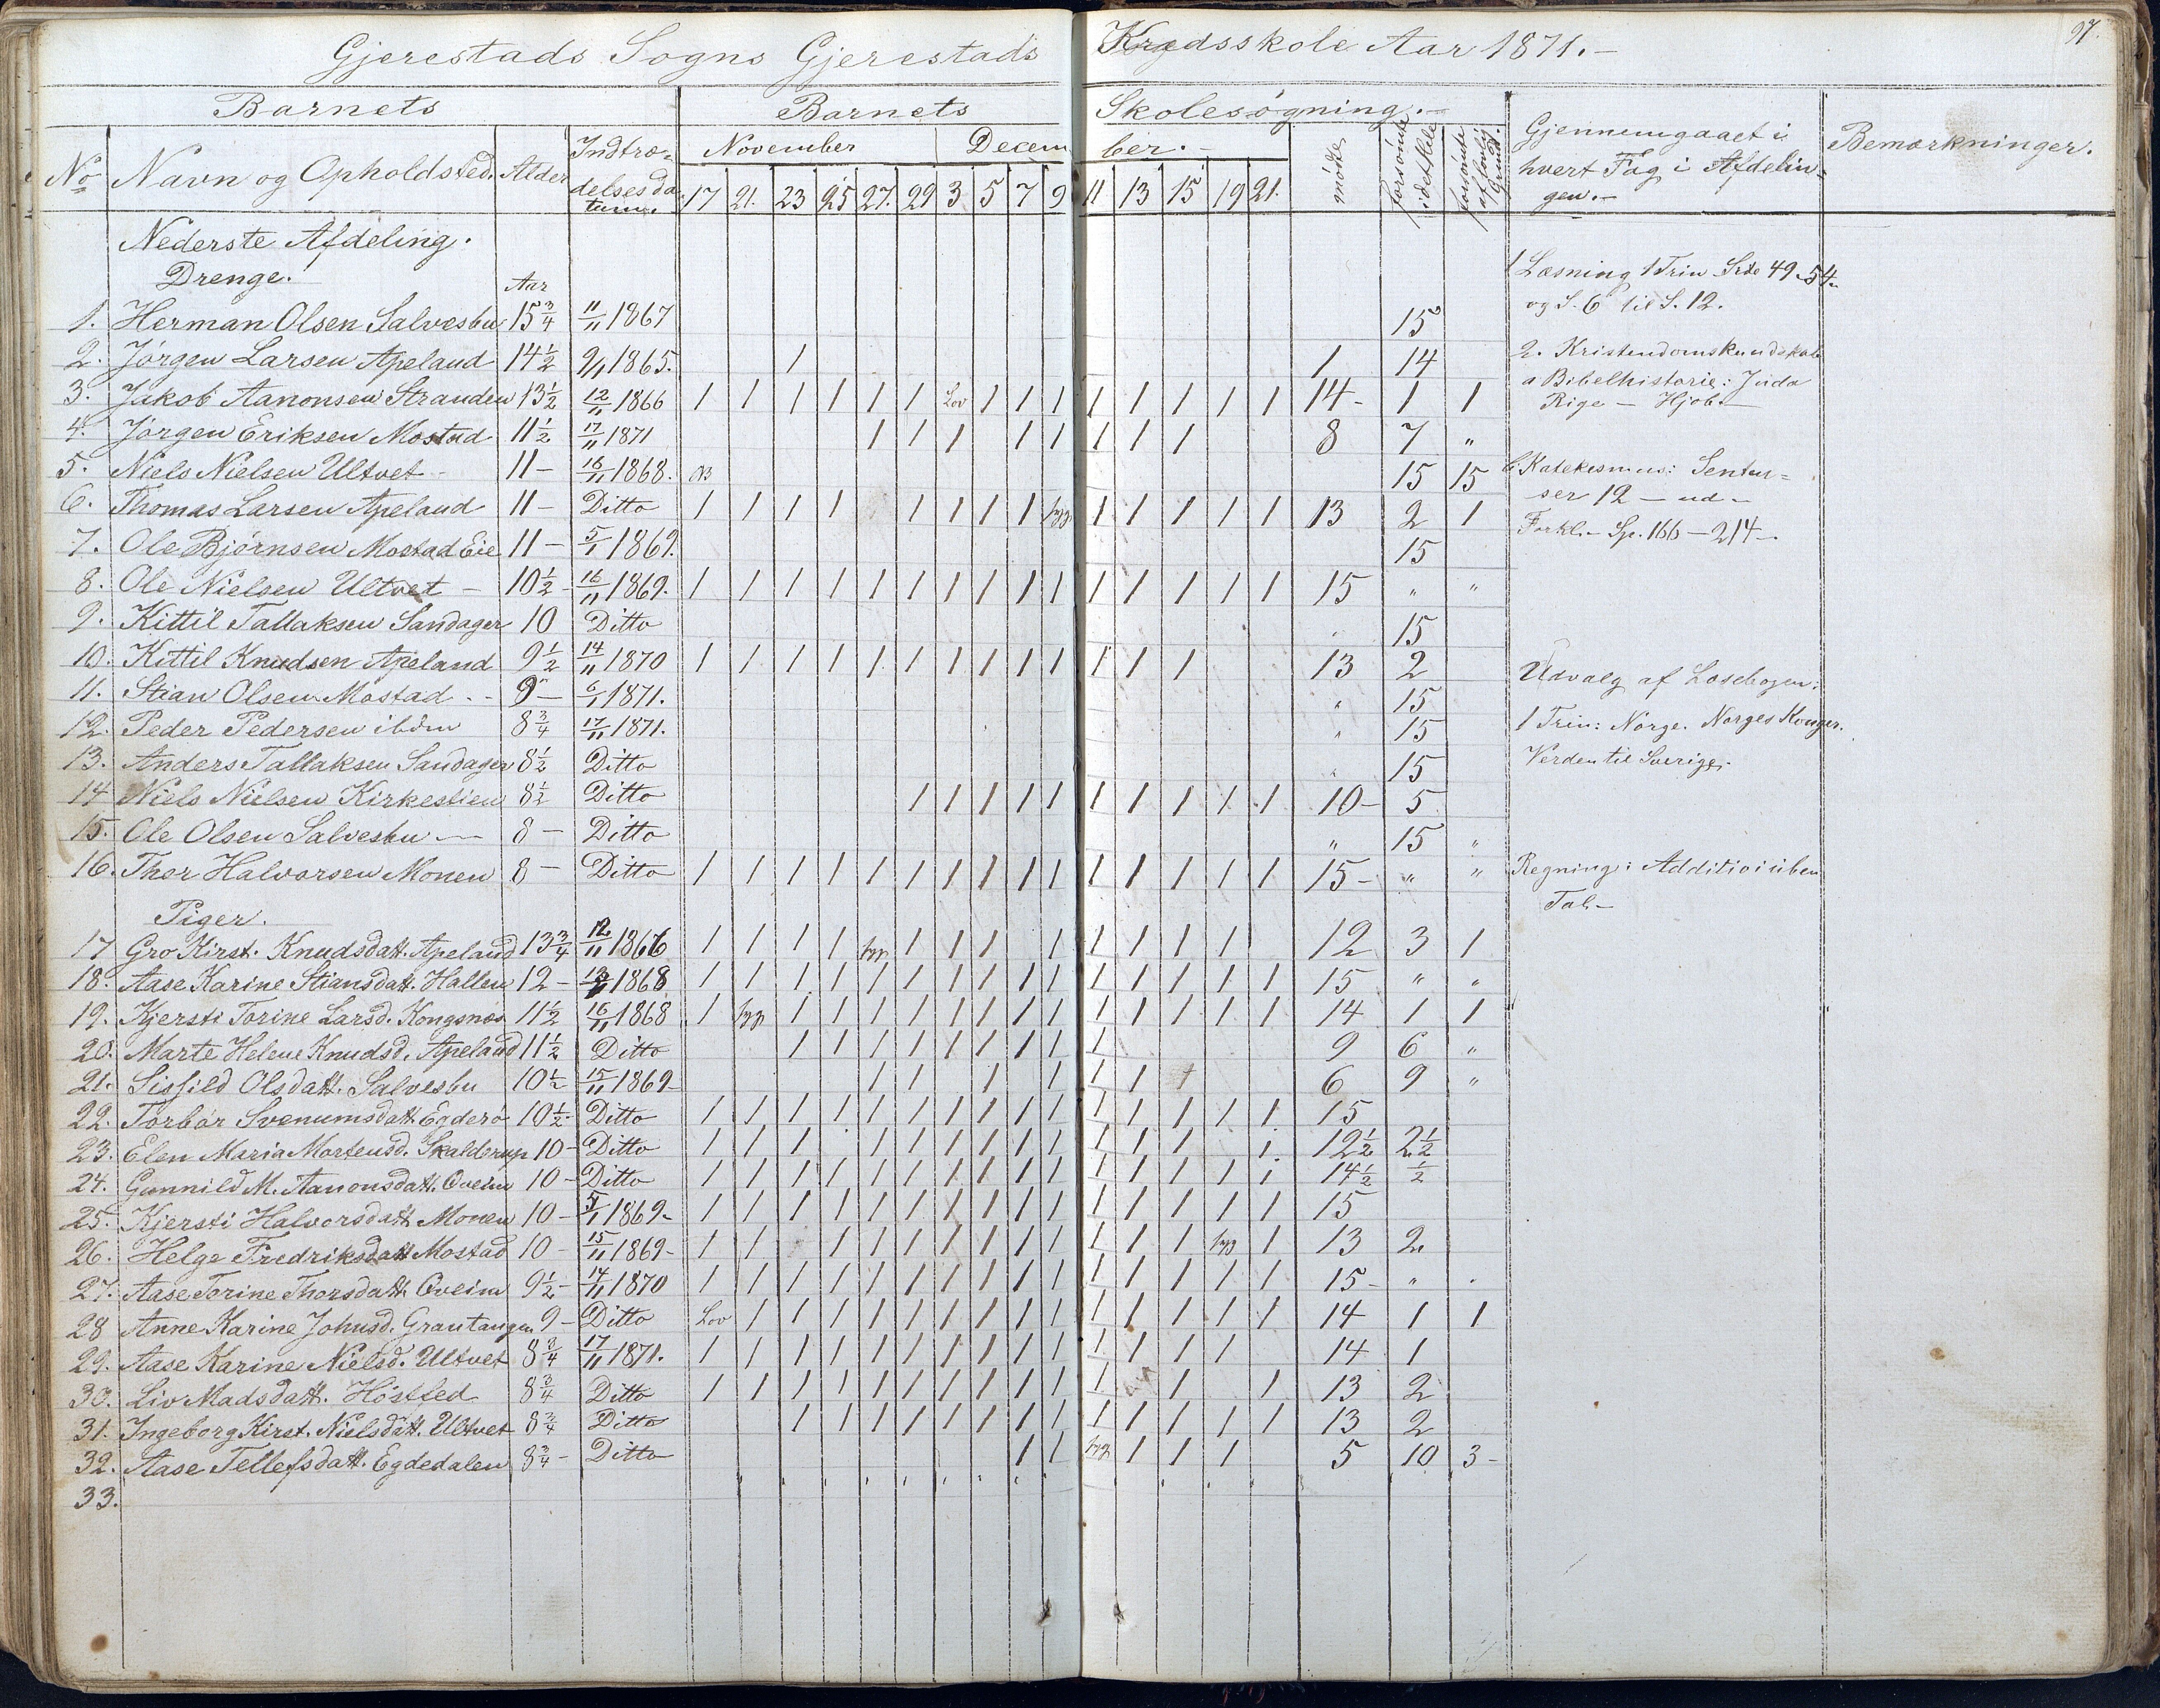 97.
Gjerestads Sogns Gjerestads Kredsskole Aar 1871.-
Barnets Barnets Skolesøgning.-
No Navn og Opholdsted. Alder Indtrædelsesdatum. November December.- mødte forsømte idethele forsømte af lovlig Grund. Gjennemgaaet i hvert Fag i Afdelingen.- Bemærkninger.
17 21. 23 25 27. 29 3 5 7 9 11 13 15 19 21.
Nederste Afdeling.
Drenge. Aar
1. Herman Olsen Salvesbu 15 3/4 11/11 1867 15
2. Jørgen Larsen Apeland 14 1/2 9/1 1865. 1 1 14
3. Jakob Aanonsen Stranden 13 1/2 12/11 1866 1 1 1 1 1 1 Lov 1 1 1 1 1 1 1 1 14- 1 1
4. Jørgen Eriksen Mostad 11 1/2 17/11 1871 1 1 1 1 1 1 1 1 8 7 "
5. Niels Nielsen Ultvet - 11 - 16/11 1868. 15 15
6. Thomas Larsen Apeland 11 - Ditto 1 1 1 1 1 1 1 1 syg 1 1 1 1 1 13 2 1
7. Ole Bjørnsen Mostad Eie 11 - 5/1 1869. 15
8. Ole Nielsen Ultvet - 10 1/2 - 16/11 1869. 1 1 1 1 1 1 1 1 1 1 1 1 1 1 1 15 " "
9. Kittil Tallaksen Sandager 10 Ditto " 15
10. Kittil Knudsen Apeland 9 1/2 14/11 1870 1 1 1 1 1 1 1 1 1 1 1 1 1 13 2
11. Stian Olsen Mostad - - 9 - 6/1 1871. " 15
12. Peder Pedersen ibdm 8 3/4 17/11 1871. " 15
13. Anders Tallaksen Sandager 8 1/2 Ditto " 15
14 Niels Nielsen Kirkestien 8 1/2 Ditto 1 1 1 1 1 1 1 1 1 1 10- 5
15. Ole Olsen Salvesbu - 8 - Ditto " 15 "
16. Thor Halvorsen Monen 8 - Ditto 1 1 1 1 1 1 1 1 1 1 1 1 1 1 1 15- " "
Piger.
17 Gro Kirst. Knudsdatt. Apeland 13 3/4 12/11 1866 1 1 1 1 syg 1 1 1 1 1 1 1 1 12 3 1
18. Aase Karine Stiansdatt. Hallen 12 - 13/11 1868 1 1 1 1 1 1 1 1 1 1 1 1 1 1 1 15 " "
19. Kjersti Torine Larsd. Kongsnæs 11 1/2 16/11 1868 1 syg 1 1 1 1 1 1 1 1 1 1 1 1 1 14 1 1
20. Marte Helene Knudsd. Apeland 11 1/2 Ditto 1 1 1 1 1 1 1 1 1 9 6 "
21. Sisfild Olsdatt. Salvesbu 10 1/2 15/11 1869- 1 1 1 1 1 1 1 6 9 "
22. Torbør Svenumsdatt. Egderø 10 1/2 - Ditto 1 1 1 1 1 1 1 1 1 1 1 1 1 1 1 15
23. Elen Maria Mortensd. Skalderup 10 - Ditto 1 1 1 1 1 1 1 1 1 1 1 1 1 12 1/2 2 1/2
24. Gunnild M. Aanonsdatt. Oveim 10 - Ditto 1 1 1 1 1 1 1 1 1 1 1 1 1 1 1 14 1/2 1/2
25. Kjersti Halvorsdatt. Monen 10 - 5/1 1869- 1 1 1 1 1 1 1 1 1 1 1 1 1 1 1 15
26. Helge Fredriksdatt Mostad 10 - 15/11 1869- 1 1 1 1 1 1 1 1 1 1 1 1 syg 1 13 2
27. Aase Torine Thorsdatt. Oveim 9 1/2 - 14/11 1870 1 1 1 1 1 1 1 1 1 1 1 1 1 1 1 15- " "
28 Anne Karine Johnsd. Grantangen 9 - Ditto Lov 1 1 1 1 1 1 1 1 1 1 1 1 1 1 14 1 1
29. Aase Karine Nielsd. Ultvet 8 3/4 17/11 1871. 1 1 1 1 1 1 1 1 1 1 1 1 1 1 14 1
30. Liv Madsdatt. Høstfed 8 3/4 Ditto 1 1 1 1 1 1 1 1 1 1 1 1 1 13 2
31. Ingeborg Kirst. Nielsdatt. Ultvet 8 3/4 Ditto 1 1 1 1 1 1 1 1 1 1 1 1 1 13 2
32. Aase Tellefsdatt. Egdedalen 8 3/4 - Ditto 1 1 syg 1 1 1 5 10 3-
33.
1 Læsning 1 Trin Side 49-54-
og S. 6 til S. 12.
2. Kristendomskundskab
a Bibelhistorie: Juda
Rige - Hjob.-
b Katekismus: Senten-
ser 12 - ud-
Forkl.- Sp. 166 - 214-
Udvalg af Læsebogen:
1 Trin: Norge. Norges Konger.
Verden til Sverige.
Regning: Addition i uben
Tal.-